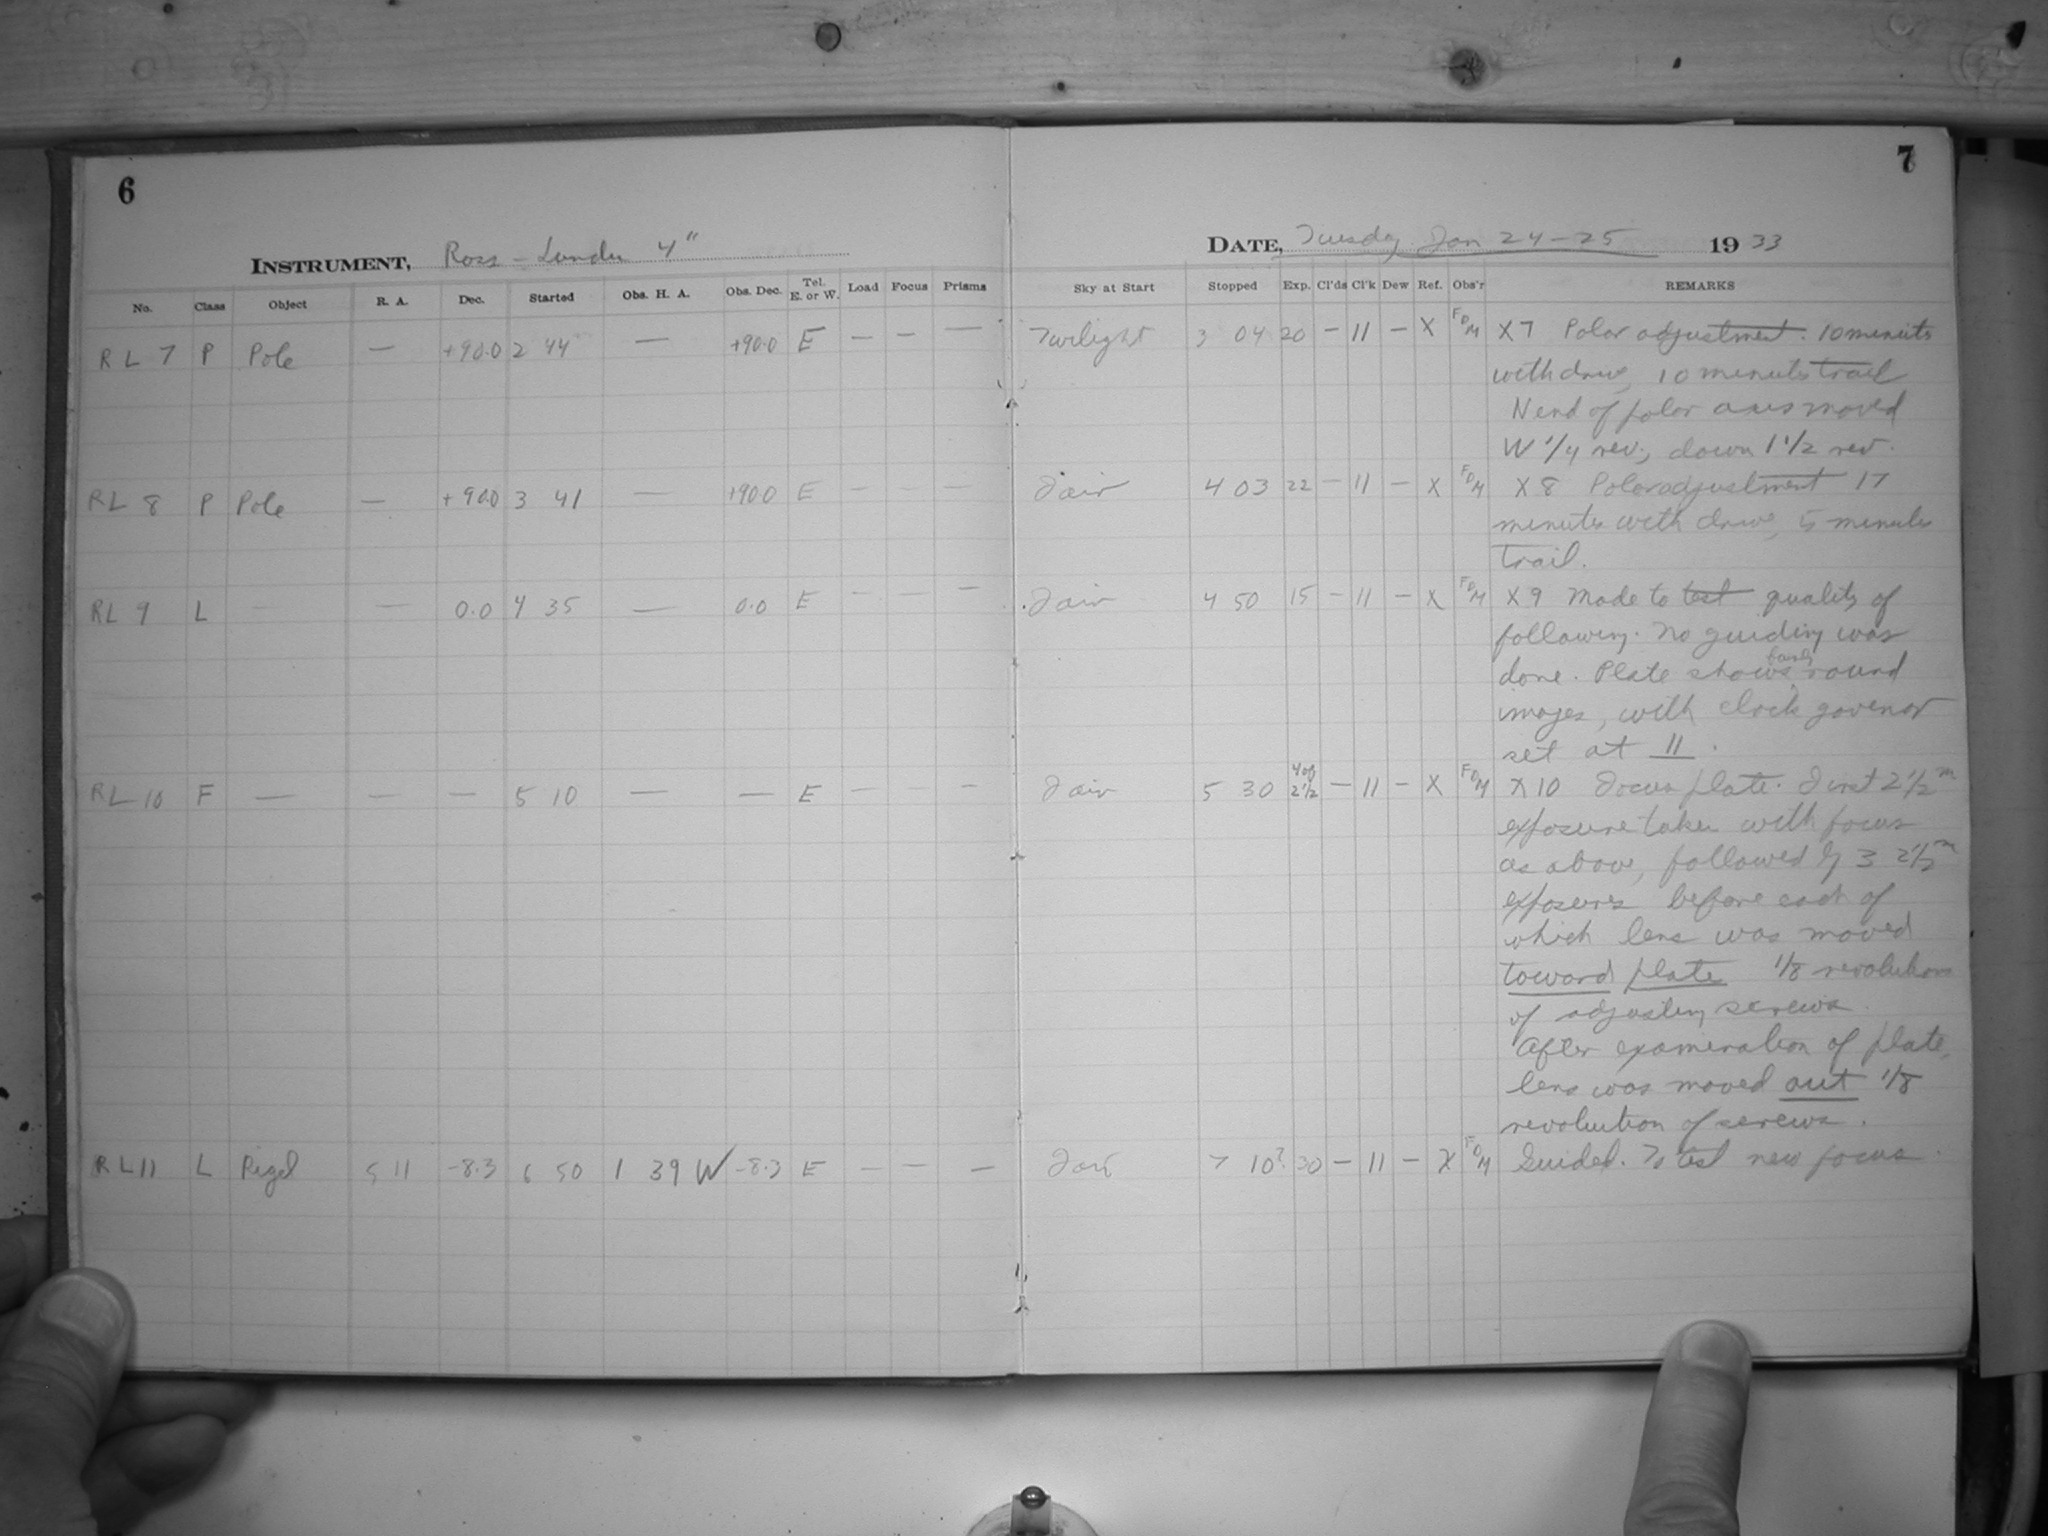 6
INSTRUMENT, Ross - Lundin 4"
No. Class Object R. A. Dec. Started Obs. H. A. Obs. Dec. Tel. E. or W. Load Focus Prisms
RL 7 P Pole — +90.0 2 44 — +90.0 E — — —
RL 8 P Pole — +90.0 3 41 — +90.0 E — — —
RL 9 L — — 0.0 4 35 — 0.0 E — — —
RL 10 F — — — 5 10 — — E — — —
RL 11 L Rigel 5 11 -8.3 6 50 1 39 W -8.3 E — — —
7
DATE, Tuesday Jan 24-25 1933
Sky at Start Stopped Exp. Cl'ds Cl'k Dew Ref. Obs'r REMARKS
Twilight 3 04 20 — 11 — X FDM X7 Polar adjustment. 10 minutes
with drive, 10 minutes trail
N end of polar axis moved
W 1/4 rev., down 1 1/2 rev.
Fair 4 03 22 — 11 — X FDM X8 Polar adjustment 17
minutes with drive, 5 minutes
trail.
Fair 4 50 15 — 11 — X FDM X9 Made to test quality of
following. No guiding was
done. Plate shows fairly round
images, with clock govenor
set at 11.
Fair 5 30 4 of 2 1/2 — 11 — X FDM X10 Focus plate. First 2 1/2 m
exposure taken with focus
as above, followed by 3 2 1/2 m
exposures before each of
which lens was moved
toward plate 1/8 revolution
of adjusting screws.
After examination of plate,
lens was moved out 1/8
revolution of screws.
7 10? 30 — 11 — X FDM Guided. To test new focus.